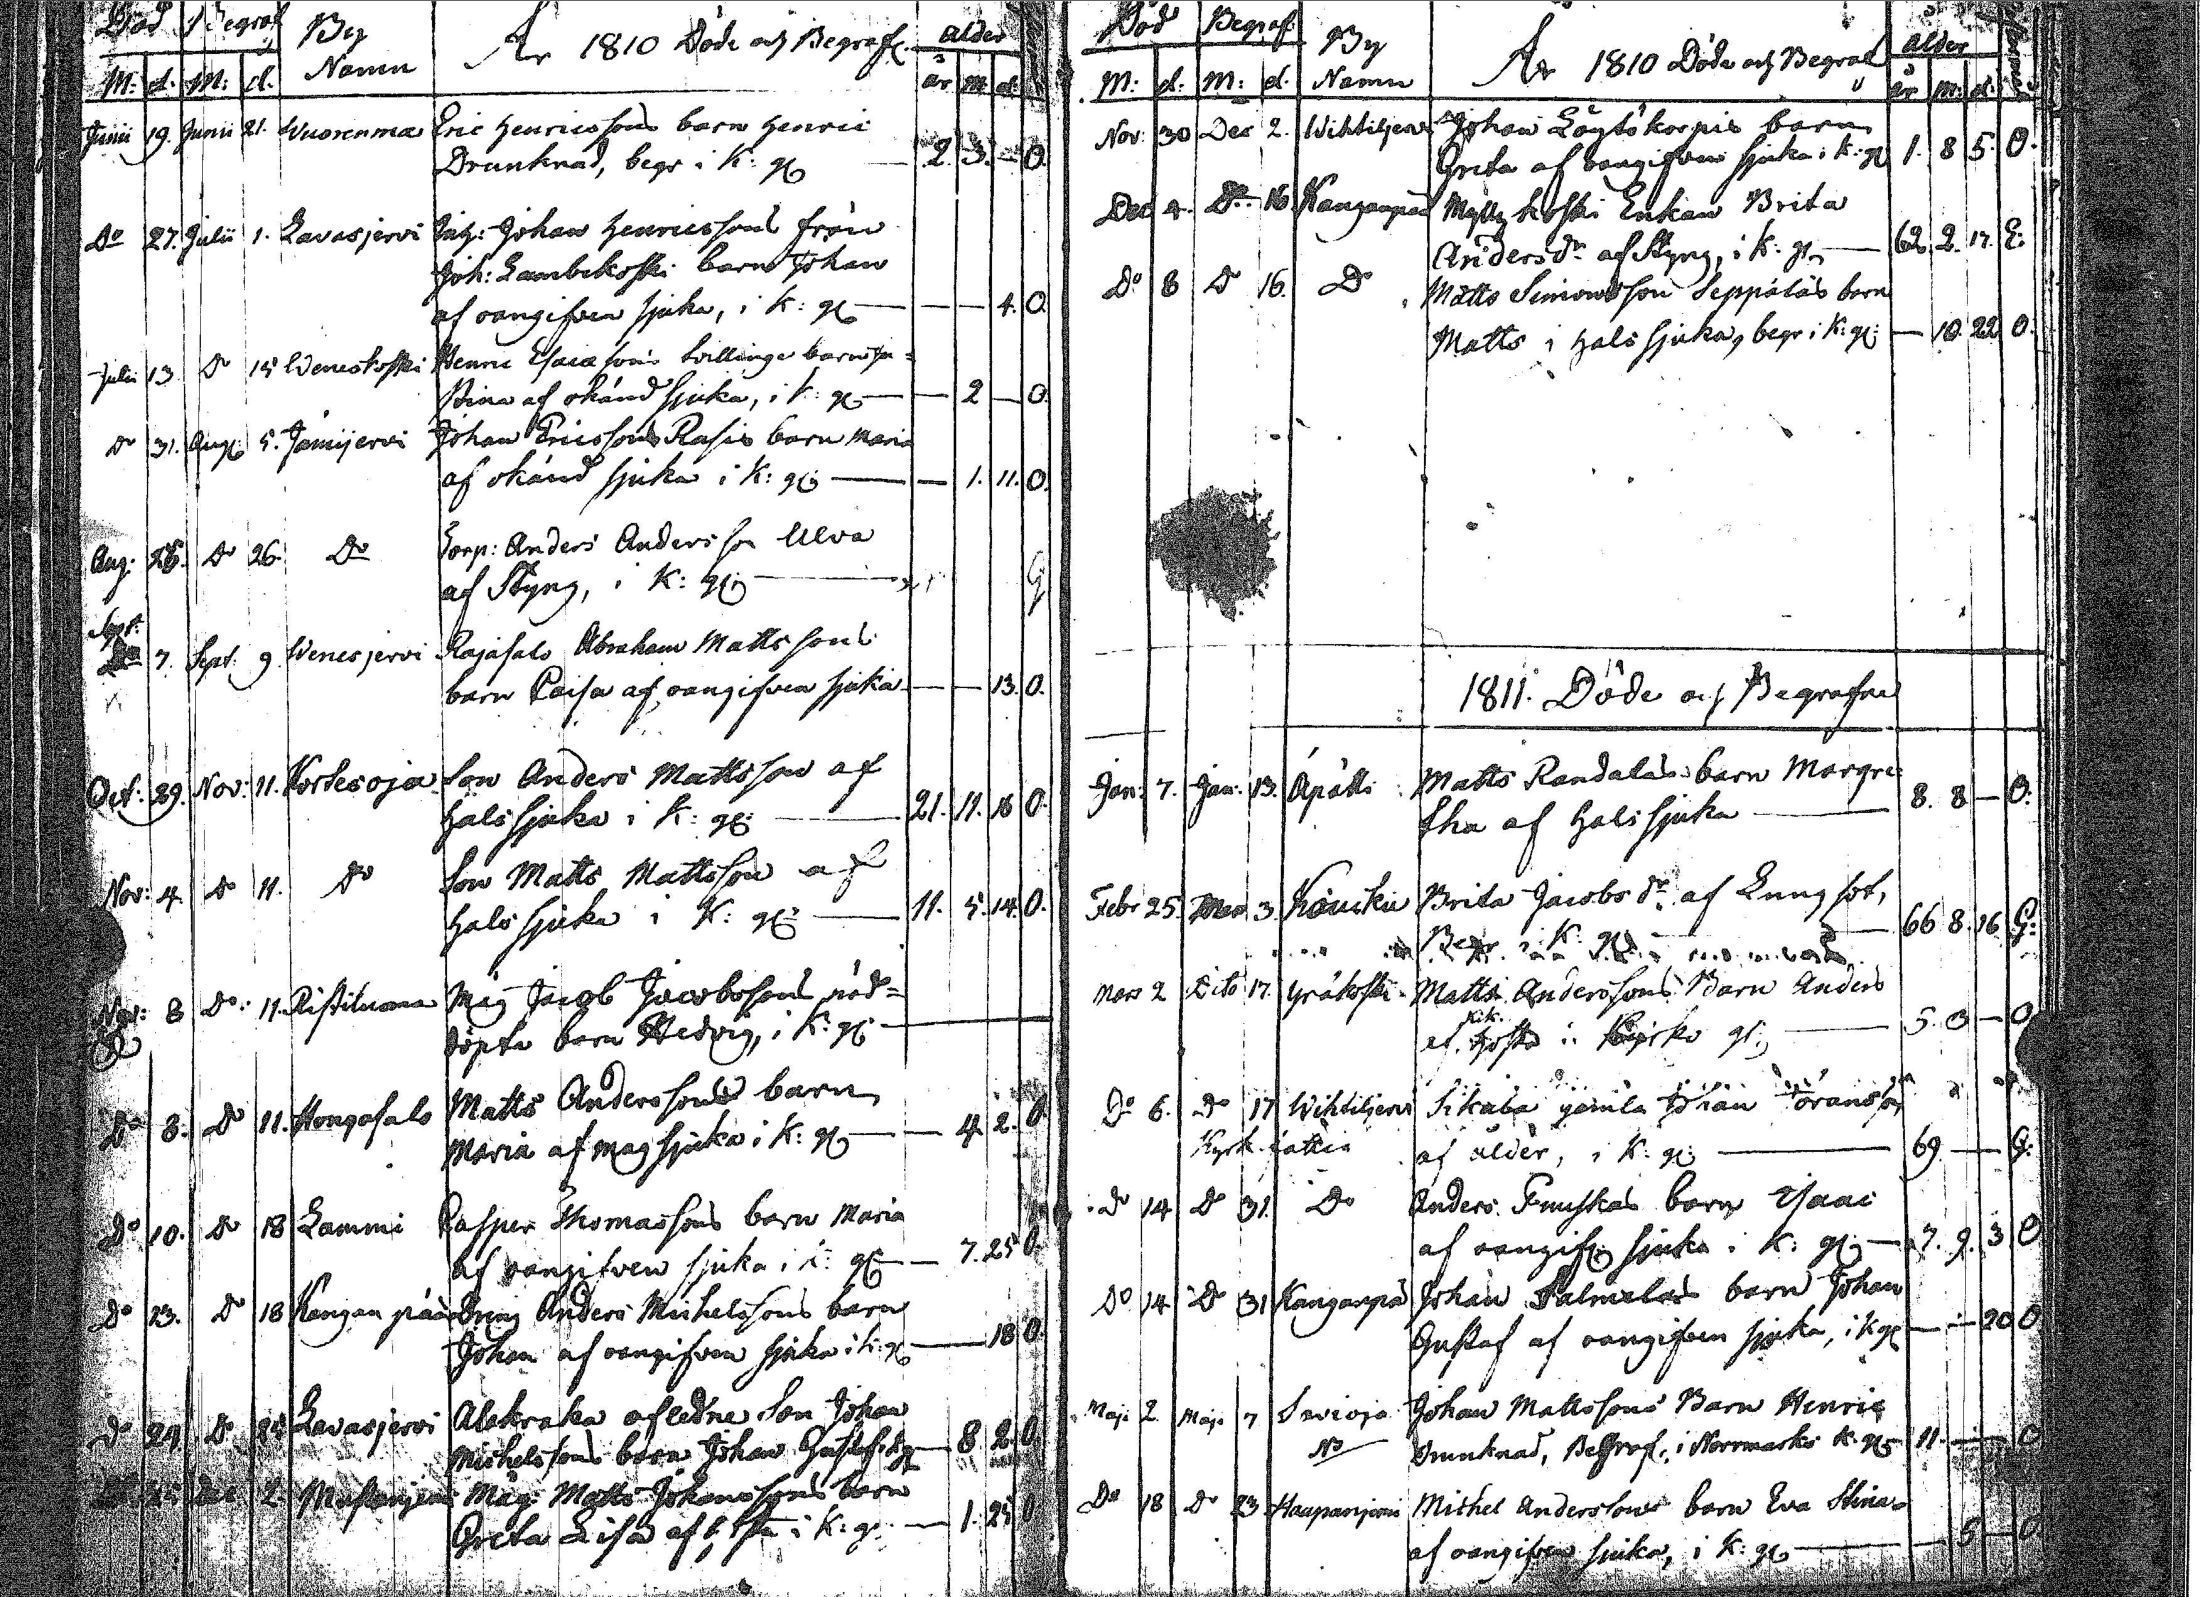 Död Begraf By Namn År 1810 Döde och Begrafn. ålder
M: d. M: d. år m d.
Junii 19. Junii 21. Wuorenmaa Eric Henricssons barn Henric
Drunknad, begr i K: g: — 2. 3. — O.
Do 27. Julii 1. Lavasjervi Inh: Johan Henricssons från
Joh: Lambikoski barn Johan
af oangifven sjuka, i K: g: — — 4. O.
Julii 13 Do 15 Weneskoski Henric Esaiæsons tvillinge barn Sa=
Bina af okänd sjuka, i K: g: — 2 — O.
Do 31. Aug: 5. Jämijervi Johan Ericssons Rasis barn Maria
af okänd sjuka i K: g: — 1. 11. O.
Aug: Do 26. Do Corp: Anders Andersson Ulva
af Styng, i K: g: — G
Sept: 7. Sept: 9 Wenesjervi Rajasalo Abraham Mattssons
barn Caisa af oangifven sjuka — — 13. O.
Oct: 29. Nov: 11. Kortesoja Son Anders Mattsson af
Halssjuka i K: g: — 21. 11. 16 O.
Nov: 4. Do 11. Do Son Matts Mattsson af
Halssjuka i K: g: — 11. 5. 14. O.
Nov: 8 Do: 11. Ristiluoma Måg Jacob Jacobssons nöd=
döpta barn Hedvig, i K: g: —
Do 8. Do 11. Hongosalo Matts Anderssons barn
Maria af magsjuka i K: g: — 4 2. O
Do 10. Do 18 Lammi Casper Thomassons barn Maria
af oangifven sjuka i K: g: — 7. 25 O.
Do 23. Do 18 Kanganpää Dreng Anders Michelssons barn
Johan af oangifven sjuka i K: g: — 18 O.
Do 24 Do 25 Lavasjervi Alakraka afledne Son Johan
Michelssons barn Johan Gustaf — 8 2. O
2. Måg Matts Johanssons barn
Greta Lisa af i K: g: — 1. 25 O
Död Begraf: By Namn År 1810 Döde och Begraf ålder
M: d: M: d. år m: d.
Nov: 30 Dec 2. Wihtiljervi Johan Löytökorpis barn
Greta af oangifven sjuka i K: g: 1. 8 5. O.
Dec 4. Do 16 Kanganpää Myllykoski Enkan Brita
Andersdr af Styng, i K: g: — 62 2. 17. E:
Do 8 Do 16. Do Matts Simonsson Seppäläs barn
Matts i Halssjuka, begr i K: g: — 10. 22 O.
1811. Döde och Begrafne
Jan: 7. Jan: 13. Apätti Matts Randalas barn Margre=
tha af Halssjuka — 8. 8 — O.
Febr 25. Mars 3. Brita Jacobsdr af Lungsot,
Begr i K: g: — 66 8. 16 G:
Mars 2 Dito 17. Matts Anderssons Barn Anders
i Kyrko g: — 5. 3 — O
Do 6. Do 17 Wihtiljervi Sikala gamla Göransson
af ålder, i K: g: — 69 — G.
Do 14 Do 31. Do Anders barn Isaac
af oangif: sjuka i K: g: — 7. 9. 3. O
Do 14 Do 31 Kanganpää Johan Palmelas barn Johan
Gustaf af oangifven sjuka, i K g: — — 20 O
Maji 2 Maji 7 Johan Mattssons Barn Henric
Drunknad, Begraf: i Norrmarks K: g: 11. — — O
Do 18 Do 23 Haapanjervi Michel Anderssons barn Eva Stina
af oangifven sjuka, i K: g: — 5 — O.